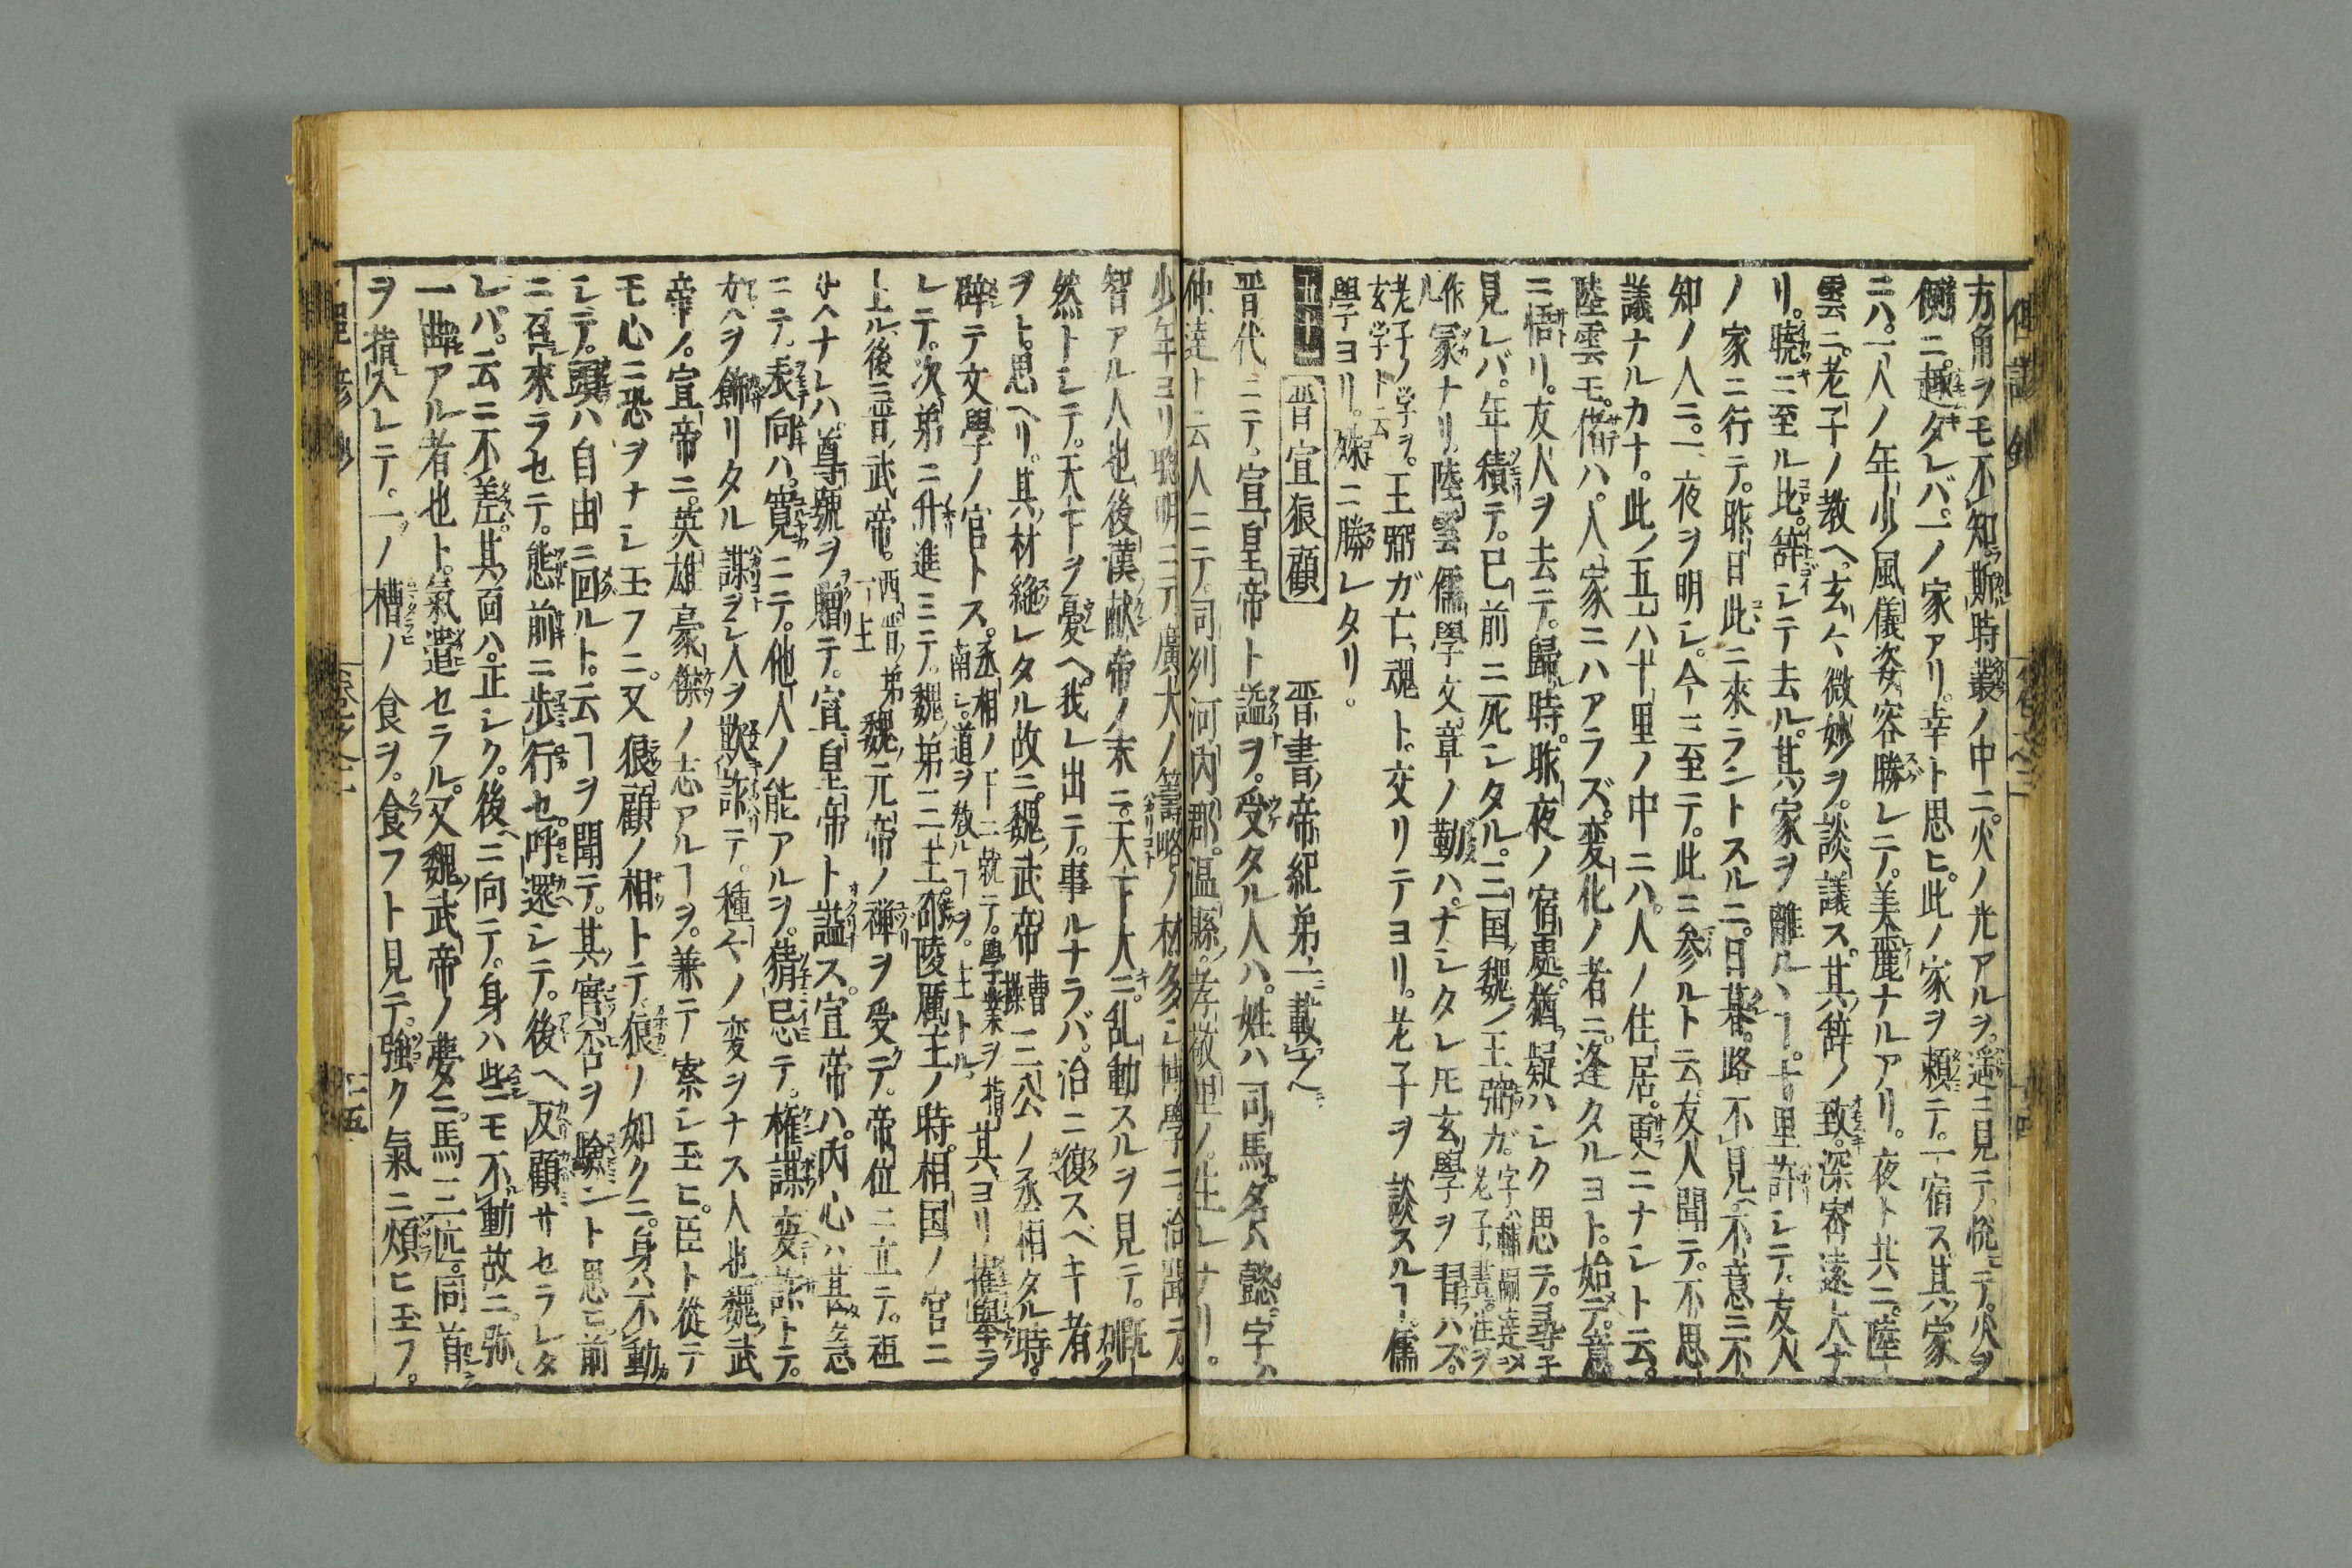 方角ヲモ不知。斯時叢ノ中ニ。火ノ光アルヲ。遥ニ見テ。悦テ。火ヲ
側ニ。越タレバ。一ノ家アリ。幸ト思ヒ。此ノ家ヲ頼テ。一宿ス。其家
ニハ。一人ノ年少ノ風儀姿容勝レテ。美麗ナルアリ。夜ト共ニ。陸
雲ニ。老子ノ教ヘ。玄々微妙ヲ。談議ス。其辞ノ致。深密遠大ナ
リ。暁ニ至ル比。辞シテ去ル。其家ヲ離ルヽヿ。十里許シテ。友人
ノ家ニ行テ。昨日此ニ來ラントスルニ。日暮。路不見。不意ニ不
知ノ人ニ。一夜ヲ明シ。今ニ至テ。此ニ参ルト云。友人聞テ。不思
議ナルカナ。此ノ五六十里ノ中ニハ。人ノ住居。更ニナシト云。
陸雲モ。偖ハ。人家ニハアラズ。変化ノ者ニ逢タルヨト。始テ。意
ニ悟リ。友人ヲ去テ。歸時。昨夜ノ宿處。猶疑ハシク思テ。尋テ
見レバ。年積テ。已前ニ死シタル。三国魏ノ王弼ガ。
作冢ナリ。陸雲儒學文章ノ勤ハ。ナシタレ𪜈玄學ヲ習ハズ。
老子ノ学ヲ。玄学ト云
王弼ガ亡魂ト。交リテヨリ。老子ヲ談スルヿ。儒
學ヨリ。殊ニ勝レタリ。
晋宣狼顧
晋書帝紀第一載之
晋代ニテ。宣皇帝ト謚ヲ。受タル人ハ。姓ハ司馬。名ハ懿。字ハ
仲達ト云人ニテ。司列河内郡。温縣。孝敬里ノ。生レナリ。
少年ヨリ聰明ニテ。廣大ノ籌略ノ材多シ。博學ニ。洽聞テ。
智アル人也。後漢献帝ノ末ニ。天下大ニ。乱動スルヲ見テ。
然トシテ。天下ヲ憂ヘ。我レ出テ。事ルナラバ。治ニ復スベキ者
ヲト。思ヘリ。其材絶レタル故ニ。魏武帝
曹操
三公ノ丞相タル時。
辟テ文學ノ官トス。
丞相ノ下ニ就テ。學業ヲ指
南シ。道ヲ教ルヿヲ。主トル
其ヨリ。擢擧ラ
レテ。次第ニ升進ミテ。魏第三主。邵陵厲王ノ時。相国ノ官ニ
上ル。後ニ晋武帝。
魏元帝ノ禅ヲ受テ。帝位ニ立テ。祖
父ヘナレハ。尊號ヲ贈テ。宣皇帝ト謚ス。宣帝ハ。内心ハ甚急
ニテ。表向ハ。寛ニテ。他人ノ能アルヲ。猜忌テ。権謀変詐トテ。
ヲ飾リタル謀ヲシ人ヲ欺詐テ。種々ノ変ヲナス人也。魏武
帝ノ。宣帝ニ。英雄豪傑ノ志アルヿヲ。兼テ察シ玉ヒ。臣ト從テ
モ心ニ恐ヲナシ玉フニ。又狼顧ノ相トテ。狼ノ如クニ。身ハ不動
シテ。頭ハ自由ニ回ルト。云ヿヲ聞テ。其實否ヲ驗ント思ヒ。前
ニ召來ラセテ。態前ニ歩行セ。呼還シテ。後ヘ反顧サセラレタ
レバ。云ニ不差。其面ハ。正シク。後ヘニ向テ。身ハ些モ不動故ニ。弥
一曲アル者也ト。氣遣セラル。又魏武帝ノ夢ニ。馬三匹。同首
ヲ揃入レテ。一ノ槽ノ食ヲ。食フト見テ。強ク氣ニ煩ヒ玉フ。